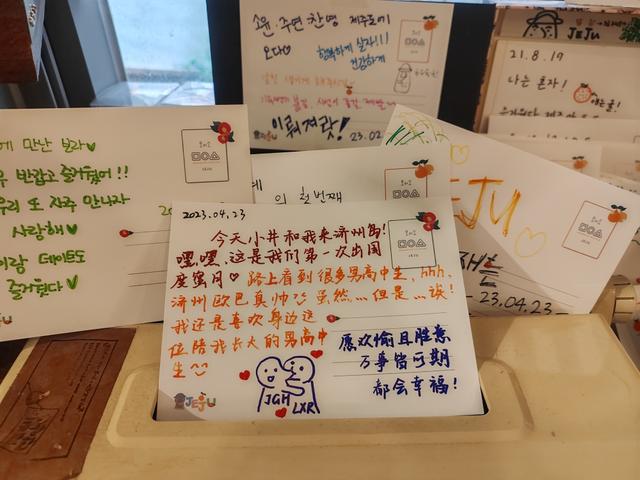 소윤·주연·찬영 제주도에
오다♡
행복하게 살자!!!
건강하게
이뤄져랏!
23.02
JEJU
21.8.19
나는 혼자!
만난 보라♥
반갑고 즐거웠어!!
우리 또 자주 만나자
사랑해♥
이랑 데이트도
즐거웠다♥
의 첫번째
JEJU
23.04.23
2023.04.23
今天小井和我来济州岛!
嘿嘿,这是我们第一次出国
度蜜月♡ 路上看到很多男高中生,hhh,
济州欧巴真帅 虽然…但是…诶!
我还是喜欢身边这
位陪我长大的男高中
生
愿欢愉且胜意
万事皆可期
都会幸福!
JGH
LXR
JEJU